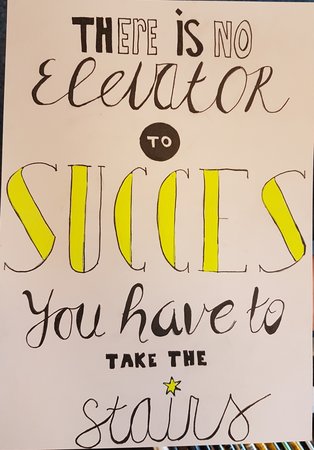 THERE IS NO
Elevator
TO
SUCCES
You have to
TAKE THE
stairs